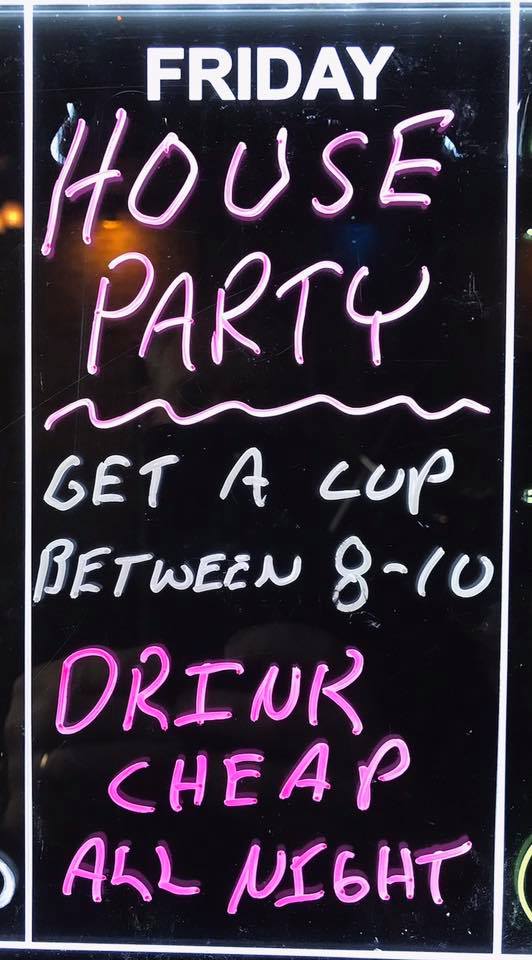 FRIDAY
HOUSE
PARTY
GET A CUP
BETWEEN 8-10
DRINK
CHEAP
ALL NIGHT